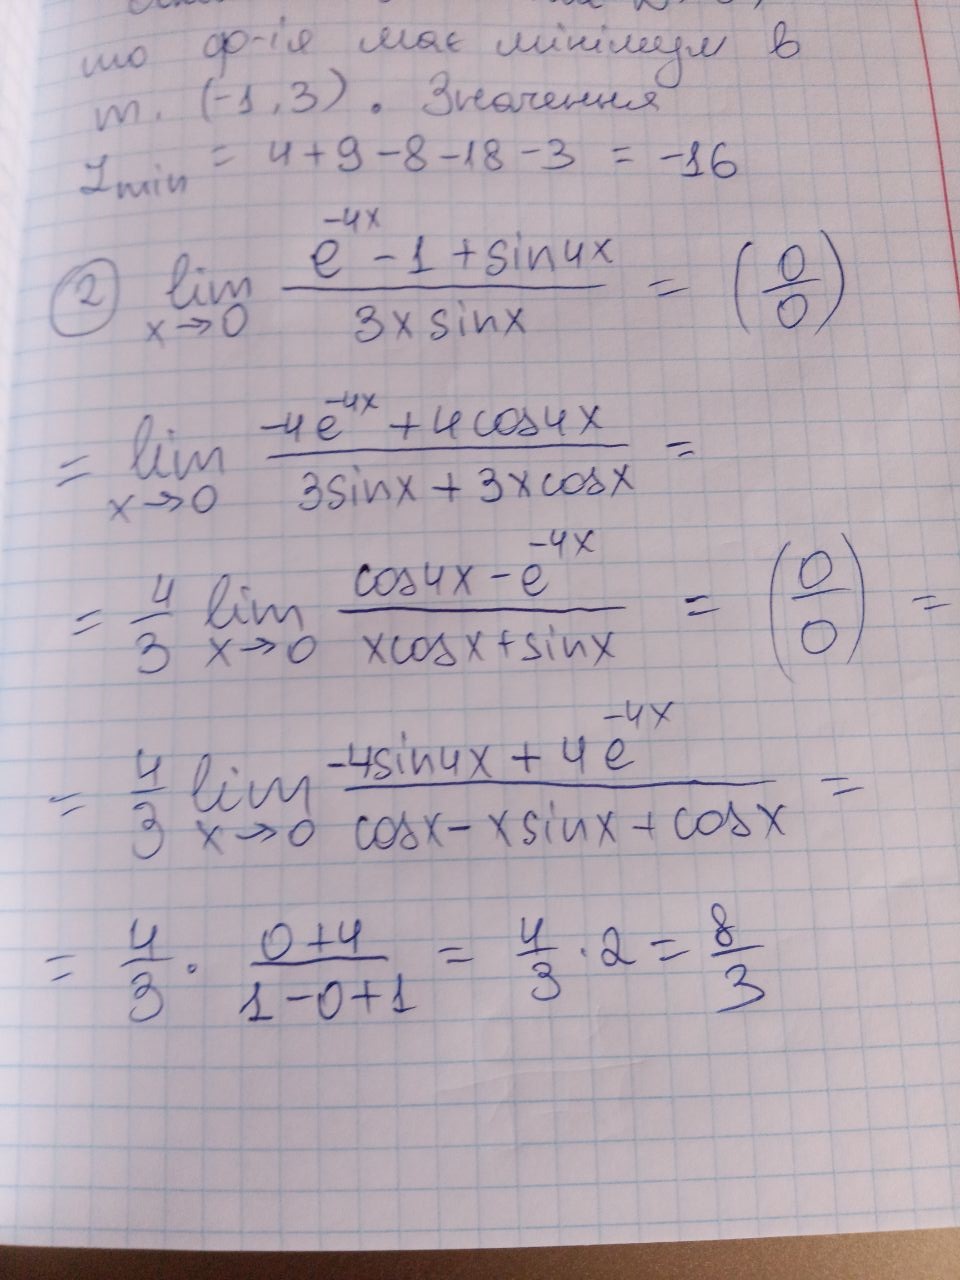 що ф-ія має мінімум в
т. (-1,3). Значення
Zmin = 4+9-8-18-3 = -16
② lim x→0 (e^(-4x) - 1 + sin4x)/(3x sinx) = (0/0)
= lim x→0 (-4e^(-4x) + 4cos4x)/(3sinx + 3xcosx) =
= 4/3 lim x→0 (cos4x - e^(-4x))/(xcosx + sinx) = (0/0) =
= 4/3 lim x→0 (-4sin4x + 4e^(-4x))/(cosx - xsinx + cosx) =
= 4/3 · (0+4)/(1-0+1) = 4/3 · 2 = 8/3